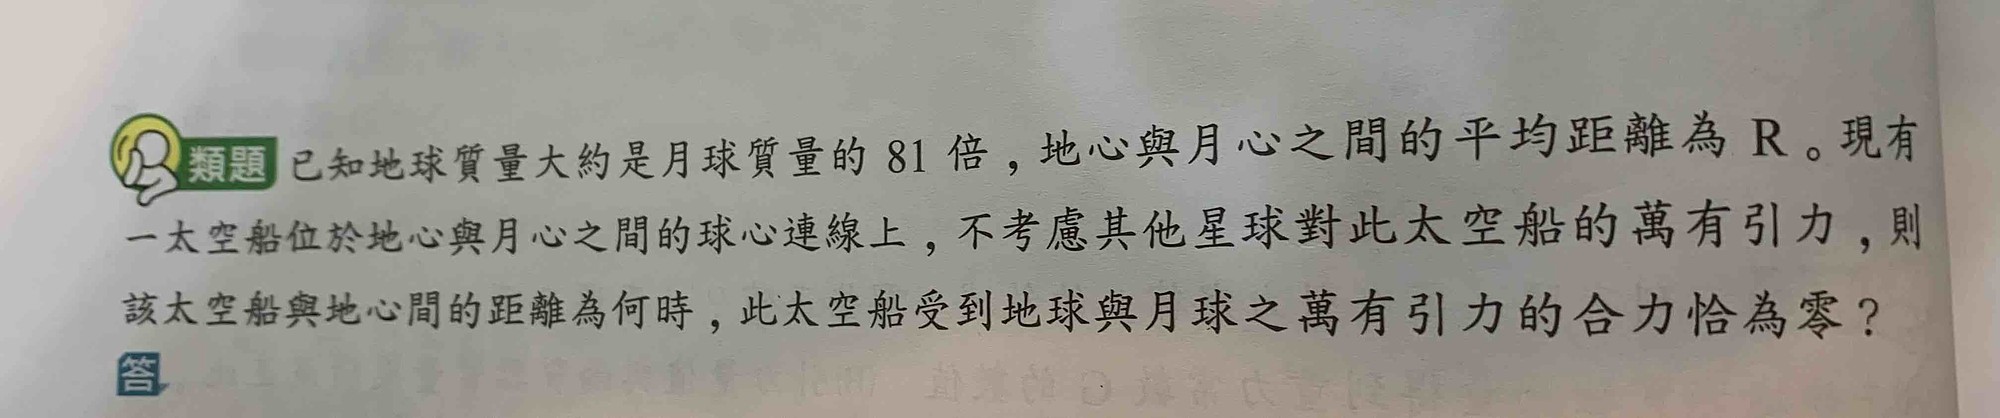 類題 已知地球質量大約是月球質量的 81 倍，地心與月心之間的平均距離為 R。現有
一太空船位於地心與月心之間的球心連線上，不考慮其他星球對此太空船的萬有引力，則
該太空船與地心間的距離為何時，此太空船受到地球與月球之萬有引力的合力恰為零？
答